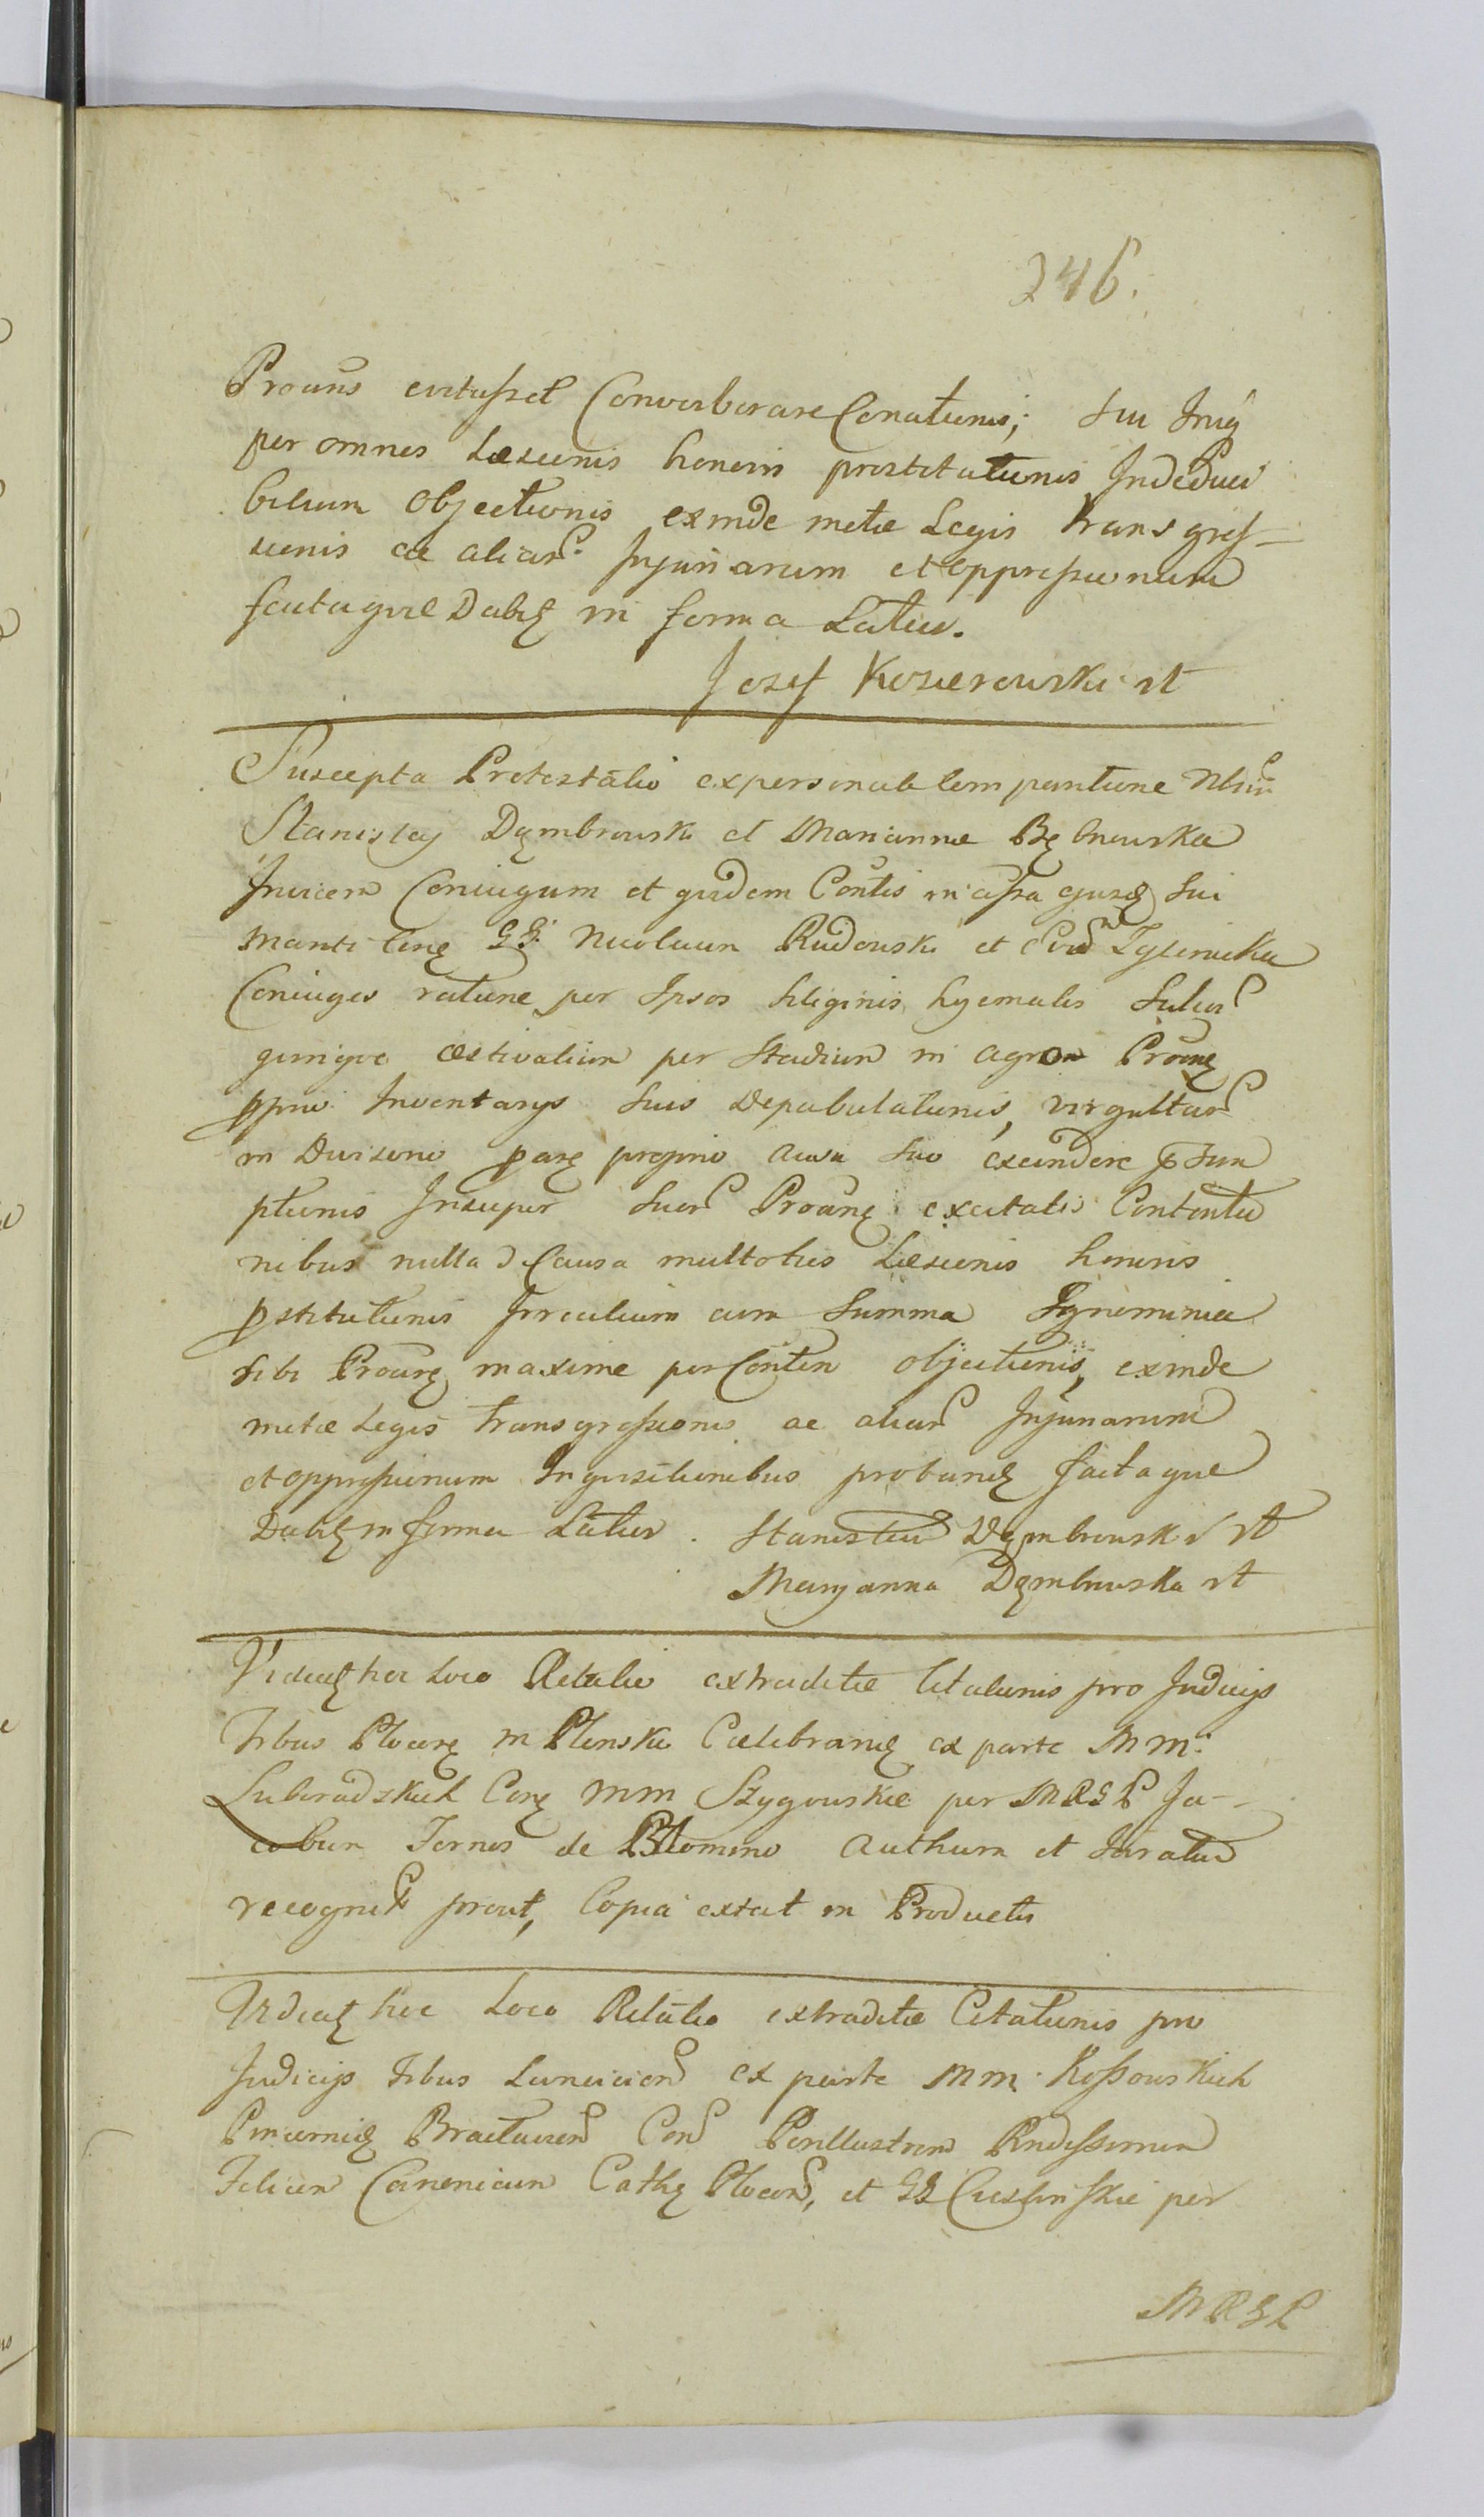 246.
Proans evitasset Converberare Conationis; sui Inig
per omnes Læsionis honoris prostitutionis Indeduci
bilium Objectionis exinde metæ Legis transgres-
sionis ac aliar. Injuriarum et oppressionum
factaque Dabit in forma Latior.
Jozef Kozierowski rt
Suscepta Protestatio ex personali comparitione
Stanislaj Dąmbrowski et Mariannæ Bębnowska
Invicem Coniugum et quidem Contis in assa ejusd sui
mariti Cong GG. Nicolaum Rudowski et Evam
Coniuges ratione per Ipsos Siliginis hyemalis
æstivalium per Stadium in agro Proang
pprio Inventarys suis Depabulationis, virgultar
in Divisorio parg proprio ausu suo exscindere psum
ptionis Insuper suor Proang excitatis Contentio
nibus nulla d Causa multoties Læsionis honoris
pstitutionis cum Summa Ignominia
sibi Proang maxime per Conten objectionis, exinde
metæ Legis transgressionis ac aliar Injuriarum
et oppressionum Inquisitionibus proband factaque
Dabit in forma Latior. Stanisław Dąmbrowski rt
Maryanna Dąmbrowska rt
Videat hoc Loco Relatio extraditæ Citationis pro Judicijs
Trbus Plocen in Plonsko Celebrand ex parte MM.
Luboradzkich Cong MM Szygowskie per MRGP Ja-
cobum Tornos de Plomino Authum et Juratum
recognit prout, Copia extat in Productis
Videat hoc Loco Relatio extraditæ Citationis pro
Judicijs Trbus Lancicien ex parte MM. Kossowskich
Pincernid Braclavien Con Perillustrem Rndissimum
Felicem Canonicum Cath Plocen, et GG per
MRGP